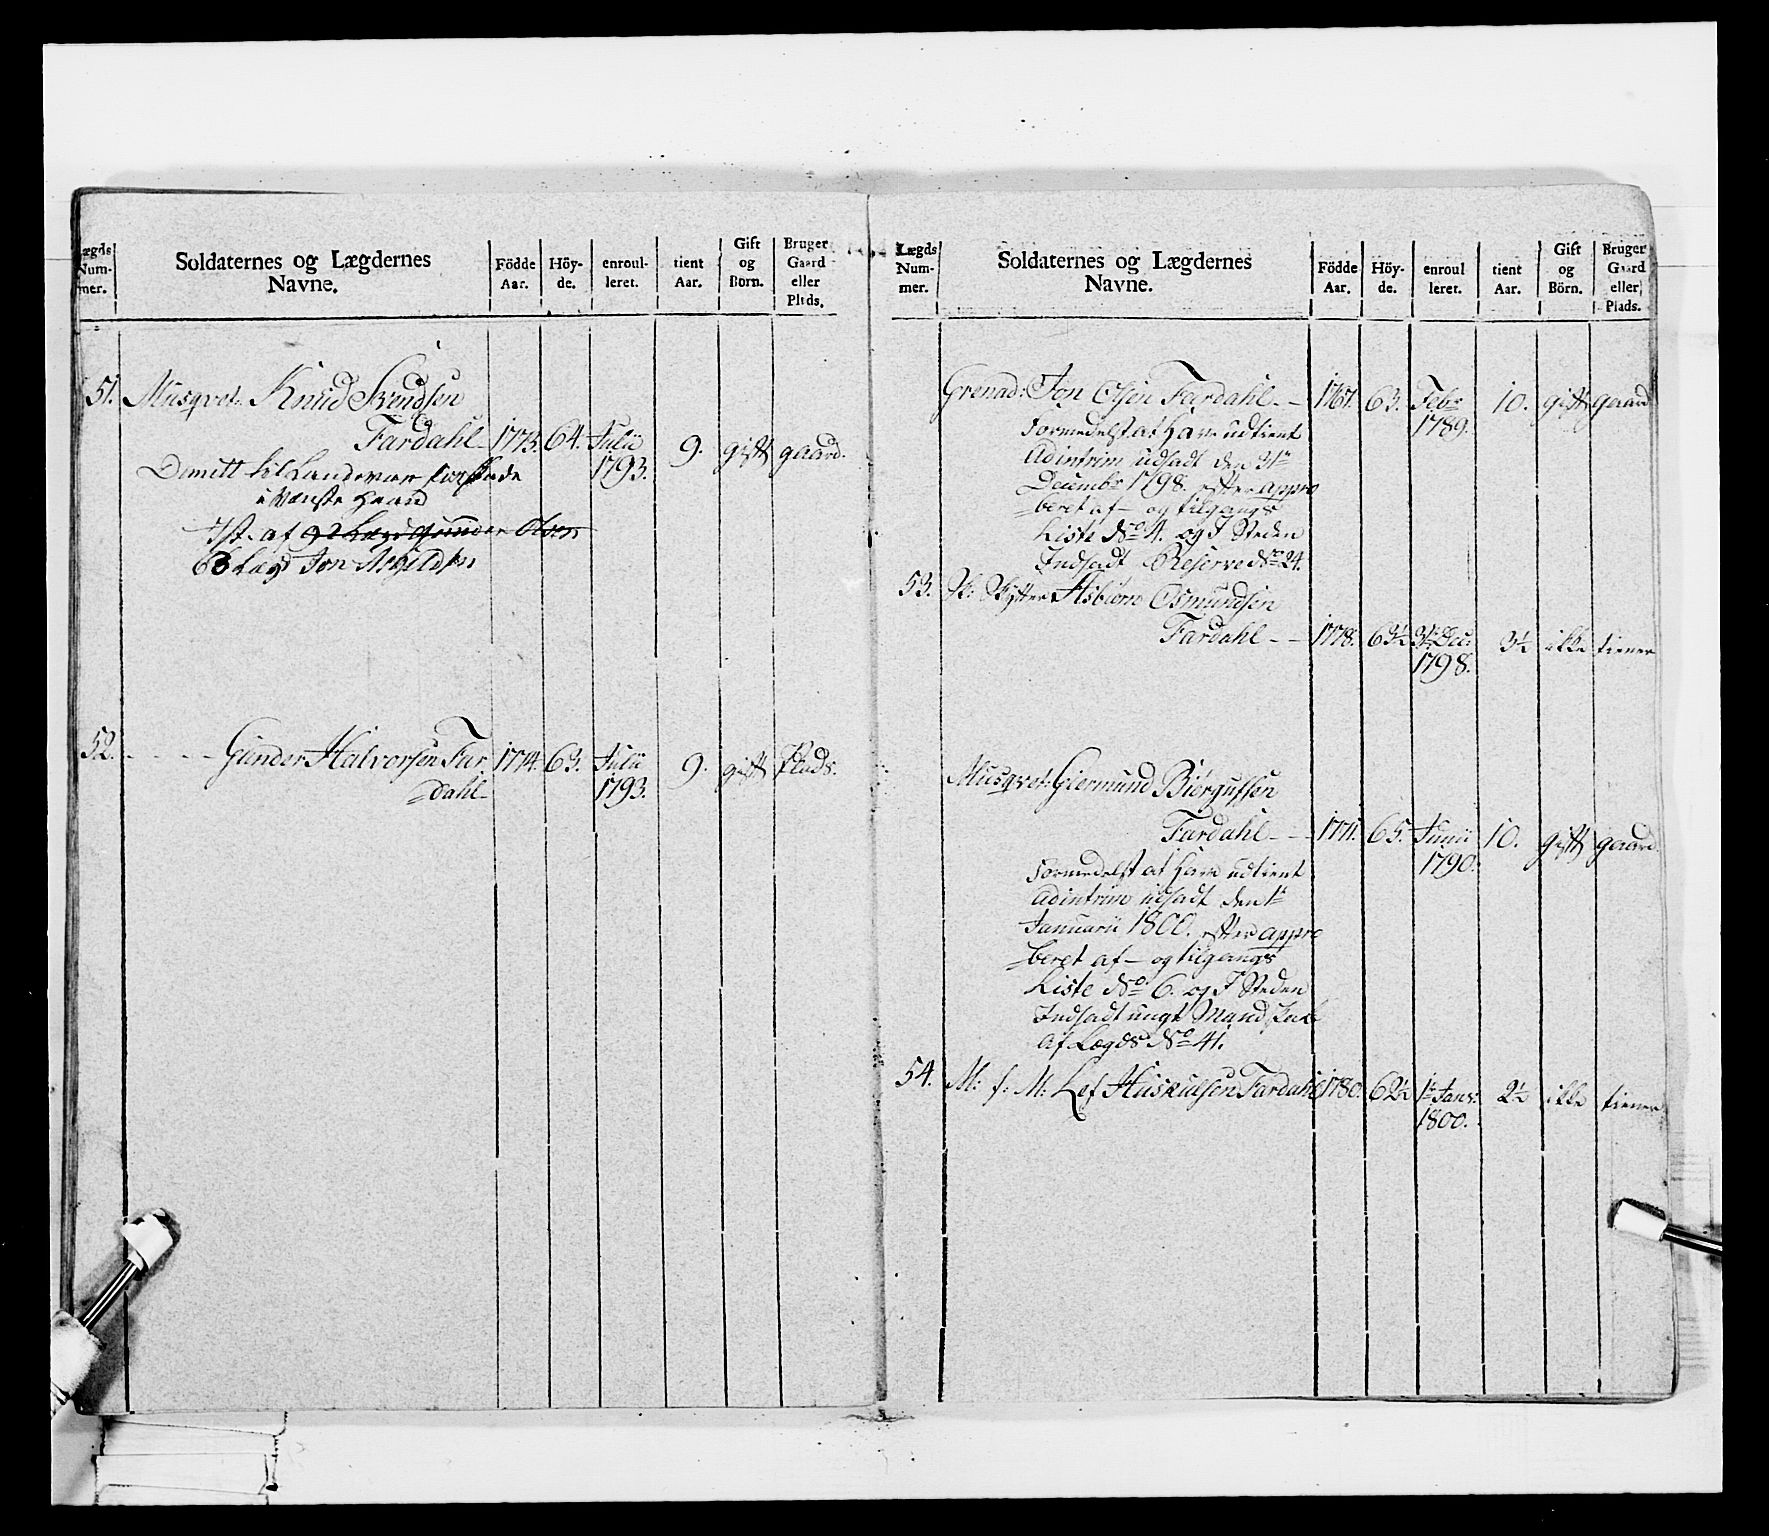 Lægds Num- mer.
Soldaternes og Lægdernes Navne.
Födde Aar.
Höy- de.
enroul- leret.
tient Aar.
Gift og Börn.
Bruger Gaard eller Plads.
51. Musqvet: Knud Svendsen
Fardahl 1775. 64. Julii 1793. 9. gift gaard.
Dimitt til Landevær
i Venste Haand
Ist. af Lægd Gunder Olsen
68 Lægd Jon
52. - - - - Gunder Halvorsen Far 1774. 63. Julii 1793. 9. gift Plads.
=dahl
Lægds Num- mer.
Soldaternes og Lægdernes Navne.
Födde Aar.
Höy- de.
enroul leret.
tient Aar.
Gift og Börn.
Bruger Gaard eller Plads.
Grenad: Jon Olsen Fardahl - - 1767. 63. Febr 1789. 10. gift gaard
Formedelst at Have udtient
Adintrim udsadt den 31te
Decembr 1798. efter appro
=beret af- og tilgangs
Liste No 4. og I Steden
Indsadt Reserve No 24.
53. Sk: Skytter Asbiørn Osmundsen
Fardahl - - 1778. 63½ 31te Dec: 1798. 3½ ikke tiener
Musqvet: Giermund Biørgufsen
Fardahl - - 1771. 65. Junii 1790. 10. gift gaard.
Formedelst at Have udtient
Adintrim udsadt den 1te
Januarii 1800. efter appro
=beret af- og tilgangs
Liste No 6. og I Steden
Indsadt ungt Mandskab
af Lægds No 41.
54. M: f: M: Lef Huskulsen Fardahl 1780. 62½ 1te Janr: 1800. 2½ ikke tiener